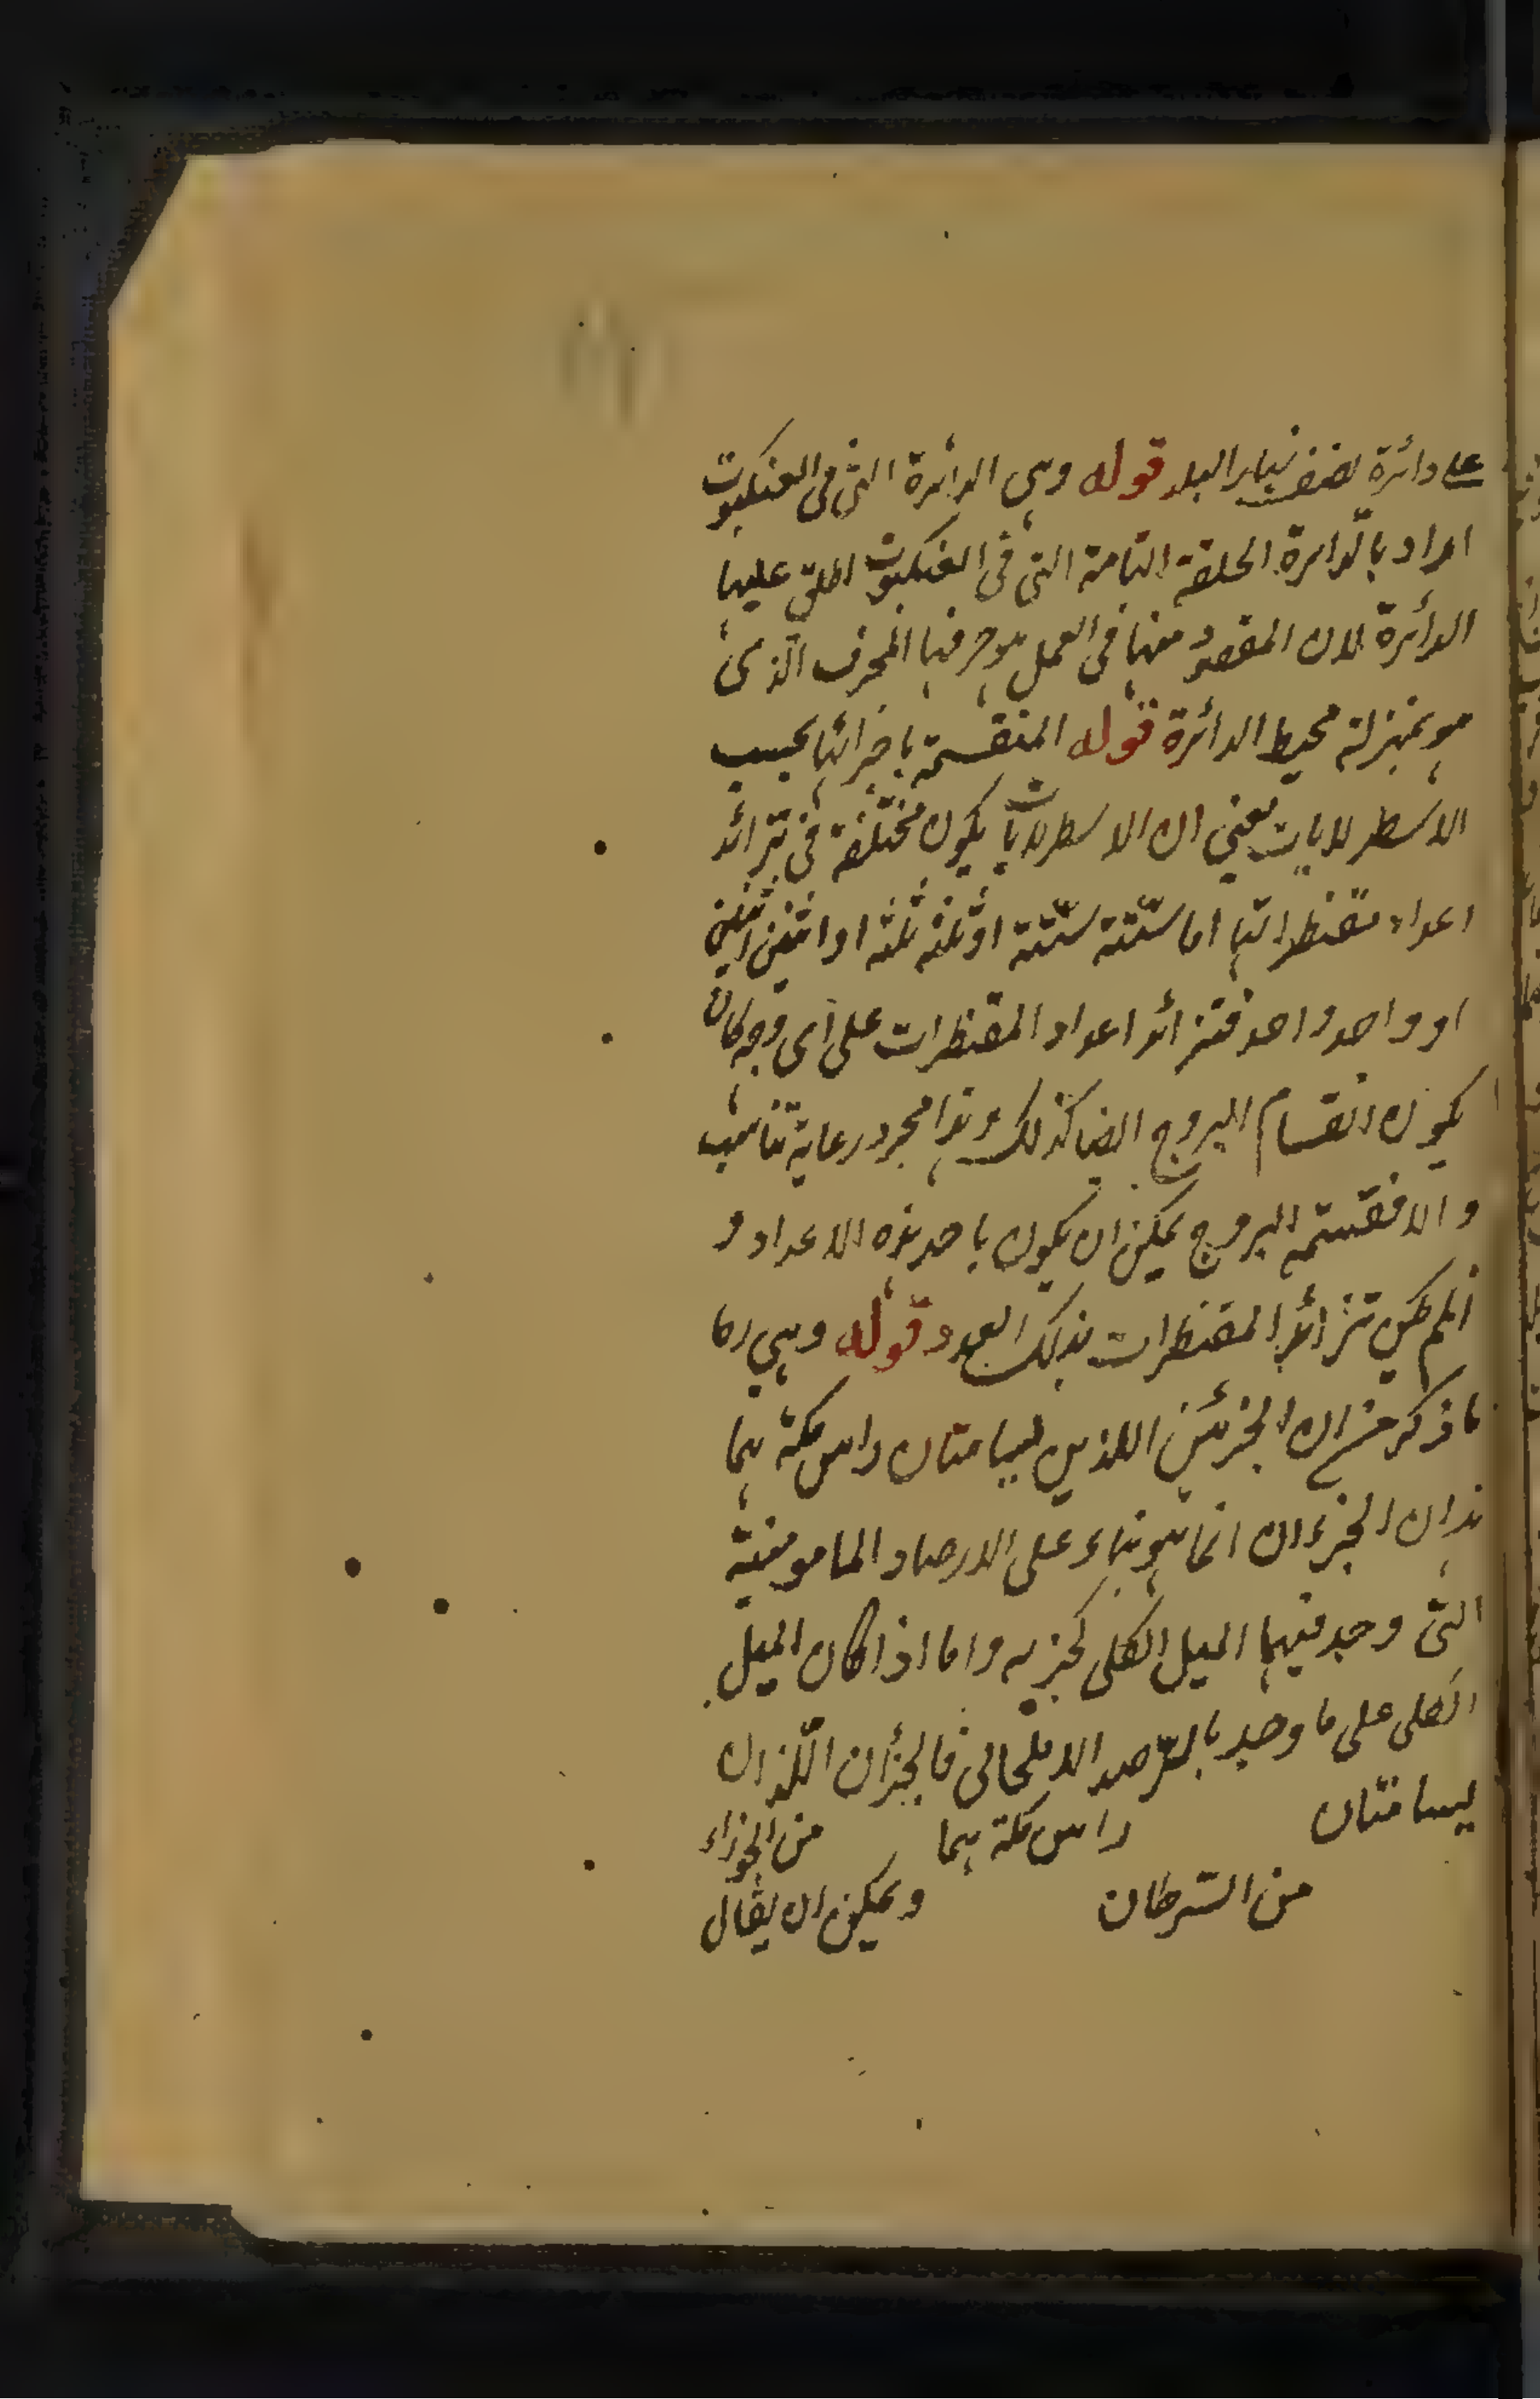 على دائرة نصف نهار البلد قوله وهى الدائرة التى فى العنكبوت
اراد بالدايرة الحلقة التامة التى فى العنكبوت اطلق عليها
الدائرة لان المقصود منها فى العمل هو حرفها المحرف الذى
هو بمنزلة محيط الدائرة قوله المنقسمة باجزائها بحسب
الاسطرلابات يعنى ان الاسطرلابات يكون مختلفة فى تزائد
اعداد مقنطراتها اما ستة ستة او ثلثة ثلثة او اثنين اثنين
او واحد واحد فتزائد اعداد المقنطرات على اى وجه كان
يكون انقسام البروج ايضا كذلك وهذا مجرد رعاية تناسب
والا فقسمة البروج يمكن ان يكون باحد هذه الاعداد و
ان لم يكن تزائد المقنطرات بذلك العدد قوله وهى
ما ذكر من ان الجزئين اللذين يسامتان راس مكة هما
هذان الجزءان انما هو بناء على الارصاد المامونية
التى وجد فيها الميل الكلى واما اذا كان الميل
الكلى على ما وجد بالرصد الايلخانى فالجزأن اللذان
يسامتان راس مكة هما من الجوزاء
من السرطان ويمكن ان يقال